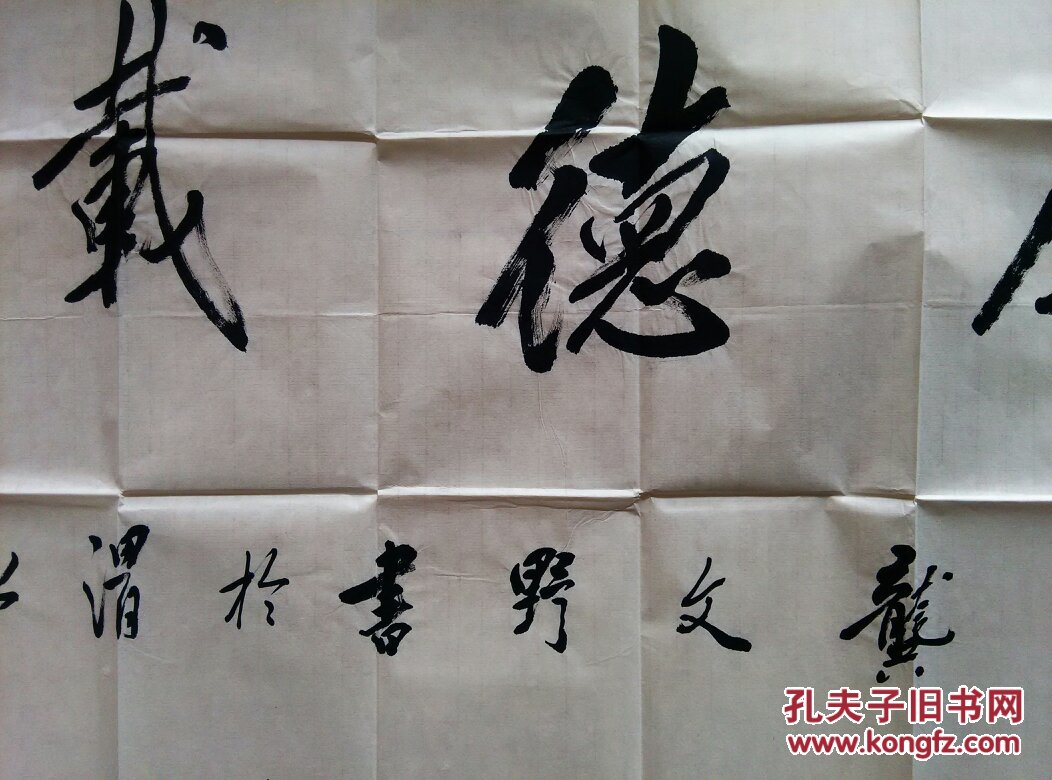 德載
龔文野書於渭
孔夫子旧书网
www.kongfz.com